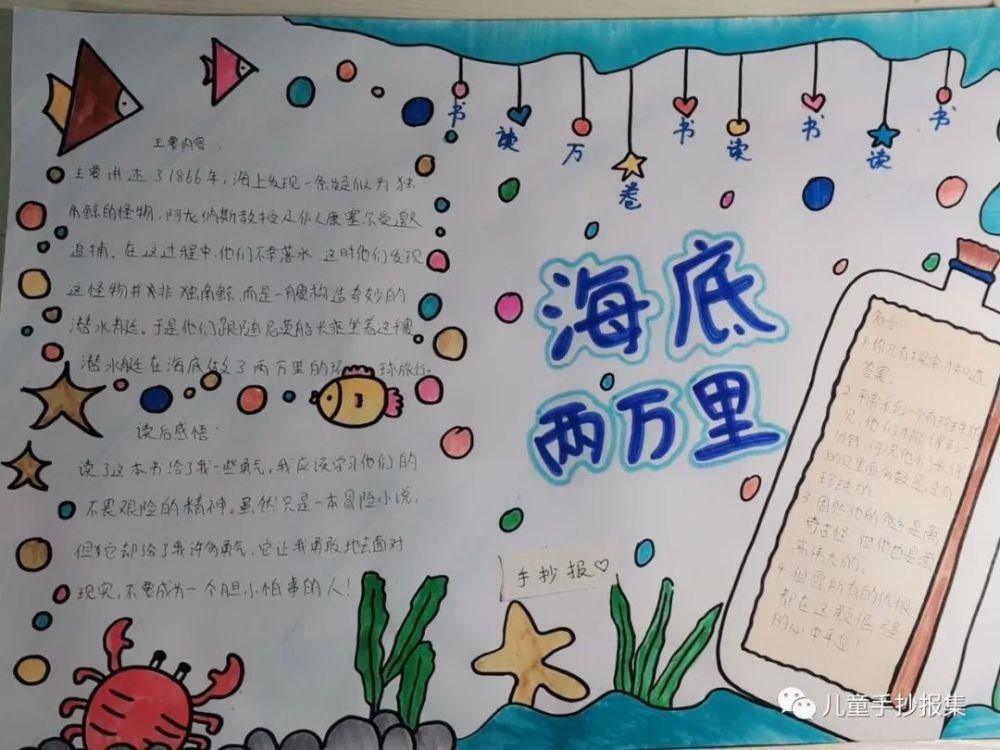 主要内容：
主要讲述了1866年，海上发现一条疑似为独
角鲸的怪物，阿龙纳斯教授及仆人康塞尔受邀
追捕。在这过程中，他们不幸落水，这时他们发现
这怪物并非独角鲸，而是一艘构造奇妙的
潜水艇。于是他们跟随尼莫船长乘坐着这艘
潜水艇在海底做了两万里的环球旅行。
读后感悟：
读了这本书给了我一些勇气，我应该学习他们的
不畏艰险的精神。虽然只是一本冒险小说，
但它却给了我许多勇气，它让我勇敢地去面对
现实，不要成为一个胆小怕事的人！
书 读 万 卷 书 读 书 读 书
海底
两万里
手抄报♡
名言：
1.你只有探索才知道
答案。
2.平常采到一个有珍珠的
贝，他们才能得到一
分钱，何况他们采得
的贝里面多数是没有
珍珠的。
3.固然他的命运是离
奇古怪 但他也是崇
高伟大的。
4.但愿所有的仇恨
都在这颗倔强
的心中平息！
儿童手抄报集